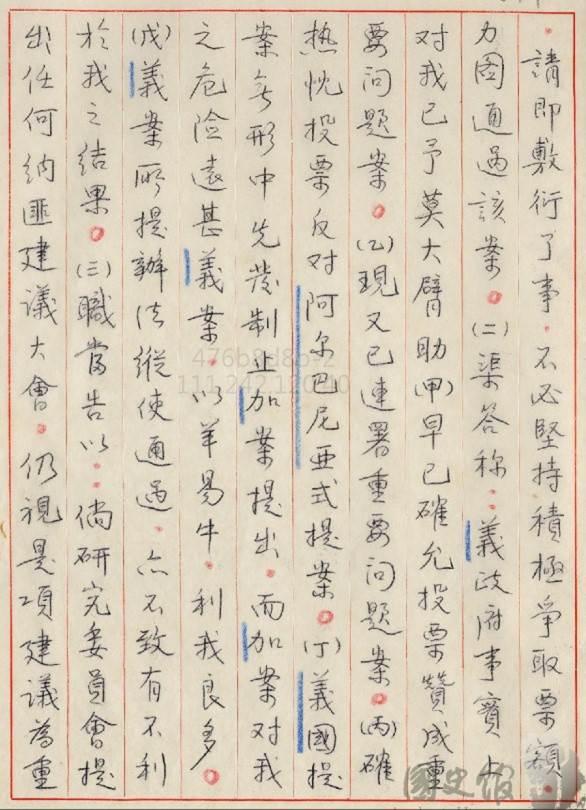 請即敷衍了事。不必堅持積極爭取票額。
力圖通過該案。(二)渠答称：義政府事實上
对我已予莫大臂助(甲)早已確允投票贊成重
要问题案。(乙)現又已連署重要问题案。(丙)確
热忱投票反对阿尔巴尼亚式提案。(丁)義國提
案無形中先發制止加案提出。而加案对我
之危险遠甚義案。以羊易牛。利我良多。
(戊)義案所提辦法縱使通过。亦不致有不利
於我之结果。(三)職當告以：倘研究委員會提
出任何纳匪建議大會。仍視是項建議為重
476b8d8b-2
111.242.120.40
國史館